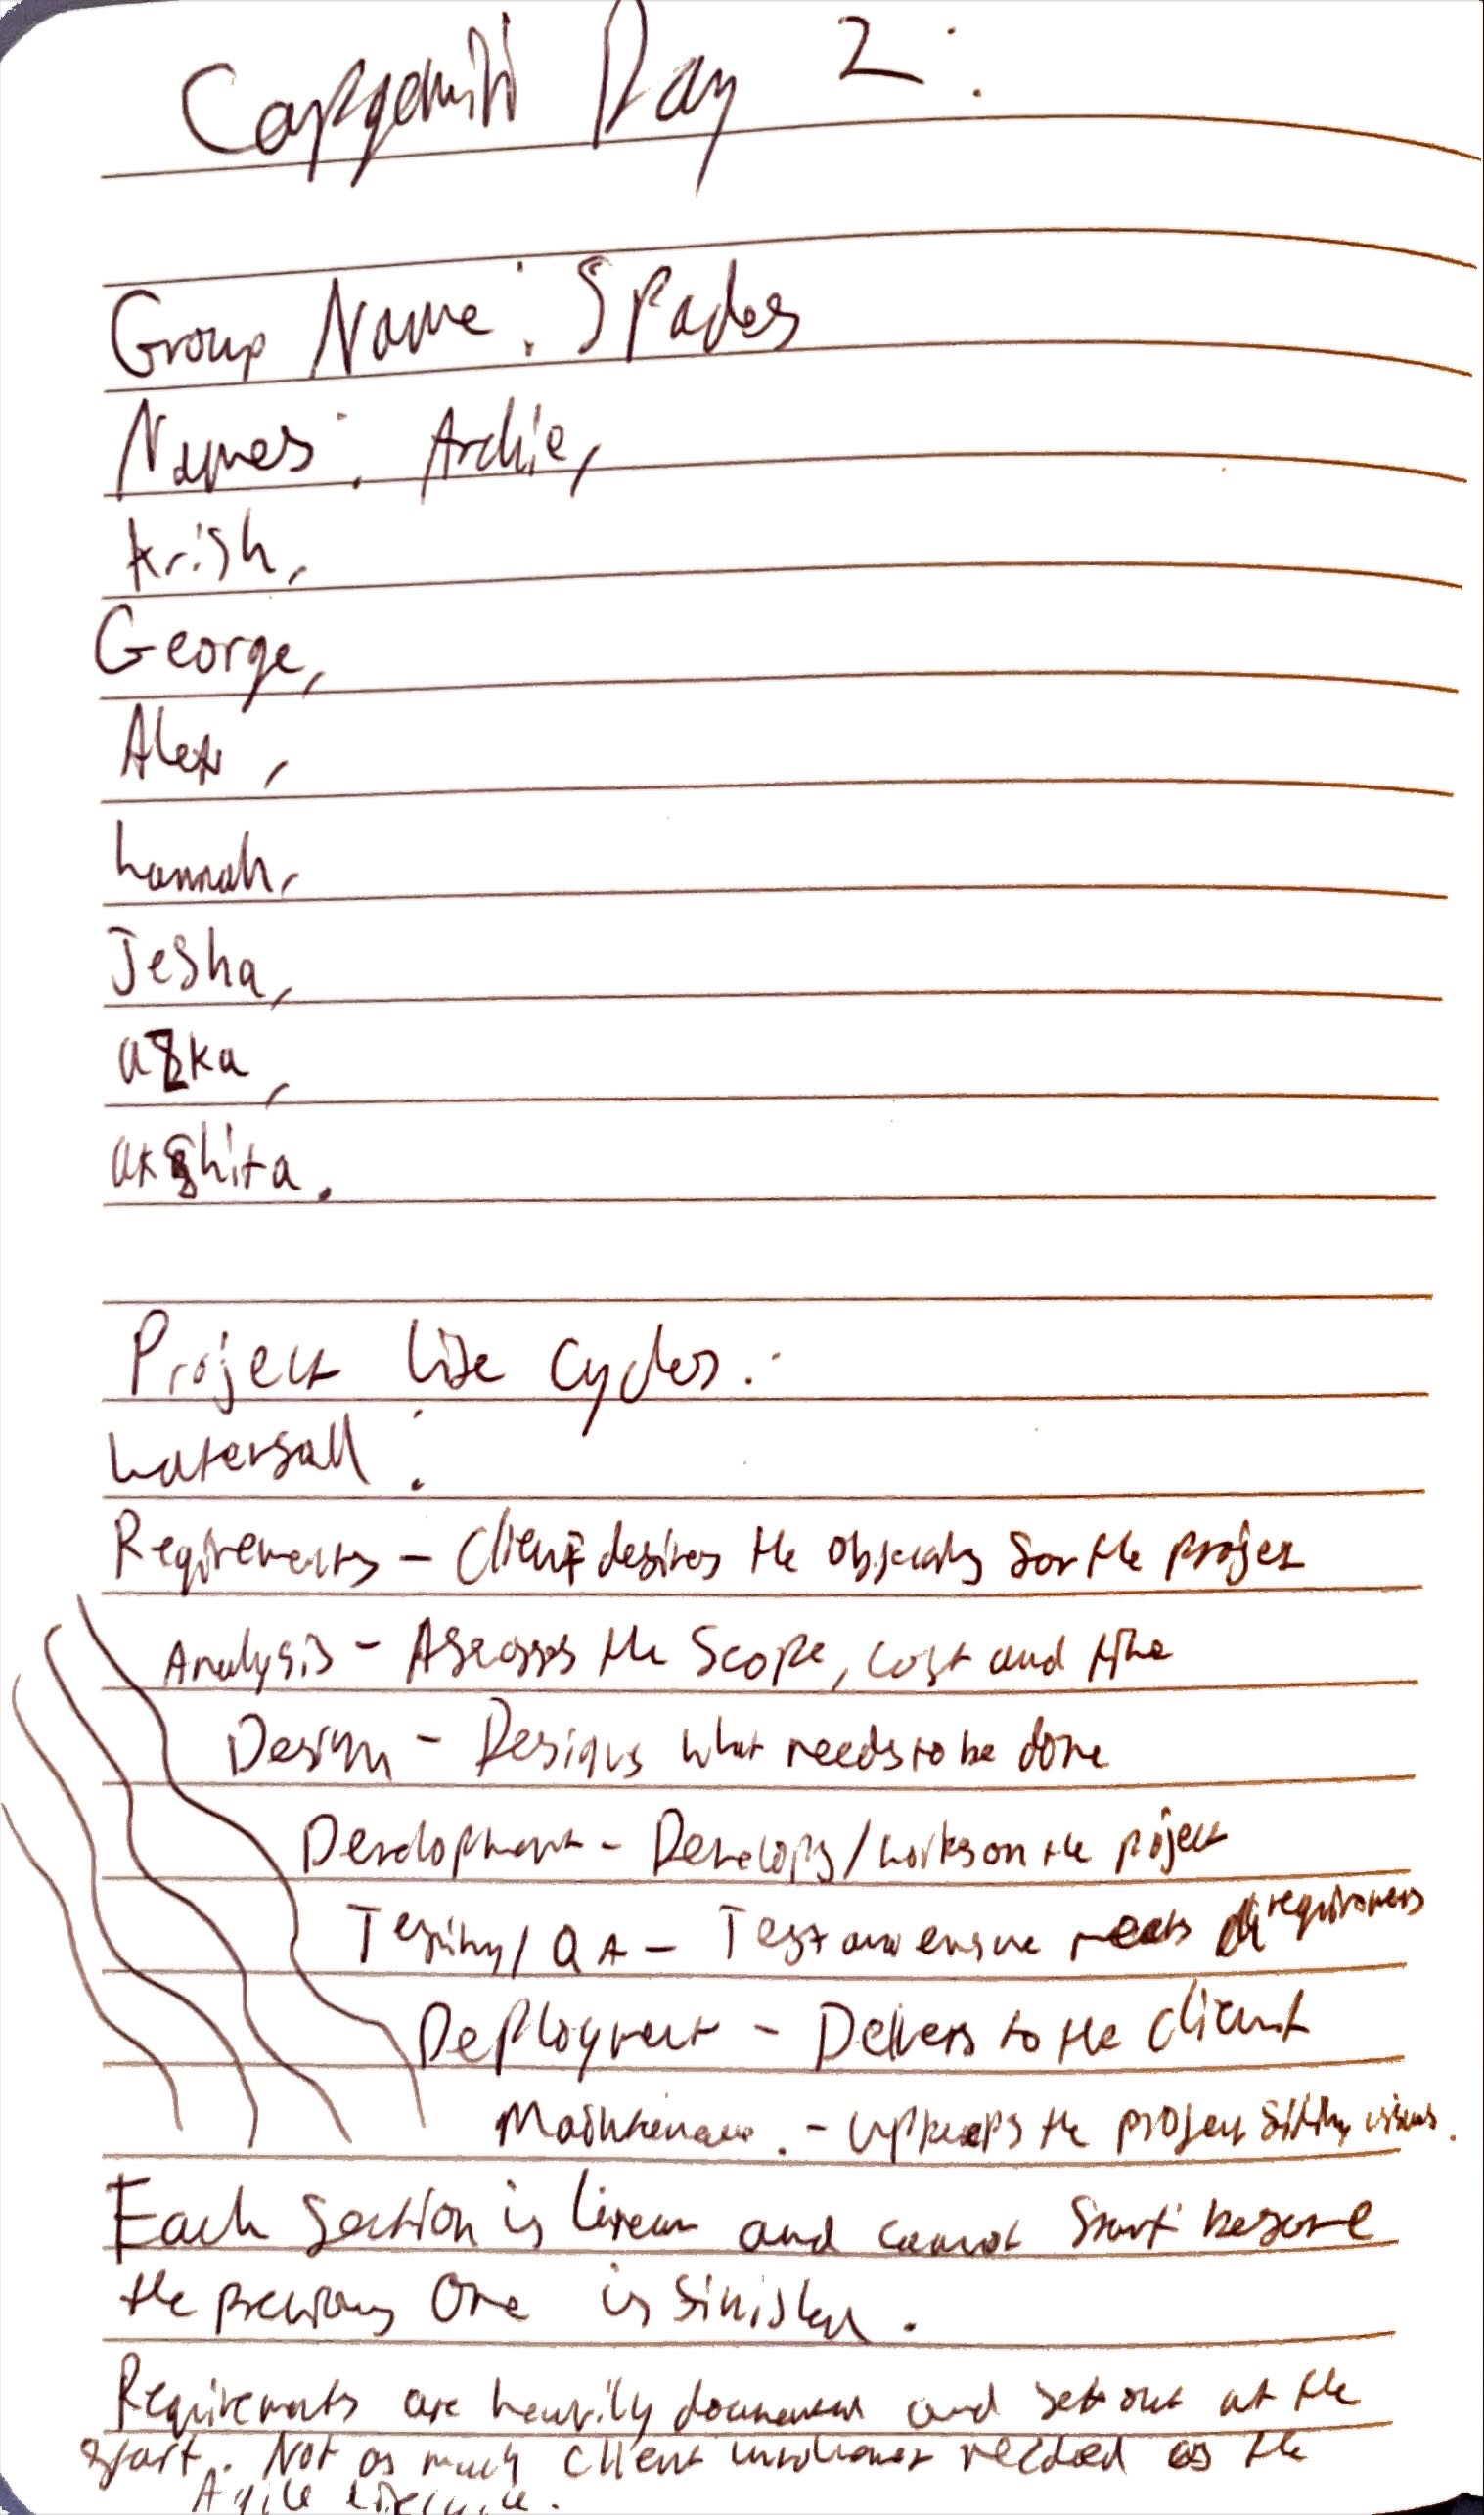 Capgemini Day 2:
Group Name: Spades
Names: Archie,
Krish,
George,
Alex,
hannah,
Jesha,
azka,
akshita.
Project life cycles:
Waterfall:
Reqirements - Client desires the objectives for the project
Analysis - Assesses the scope, cost and time
Design - Designs what needs to be done
Development - Develops/works on the project
Testing/QA - Test and ensure meets requirements
Deployment - Delivers to the client
Maintenance. - upkeeps the project fixing issues.
Each section is linear and cannot start before
the previous one is finished.
Requirements are heavily documented and set out at the
start. Not as much client involvement needed as the
Agile lifecycle.